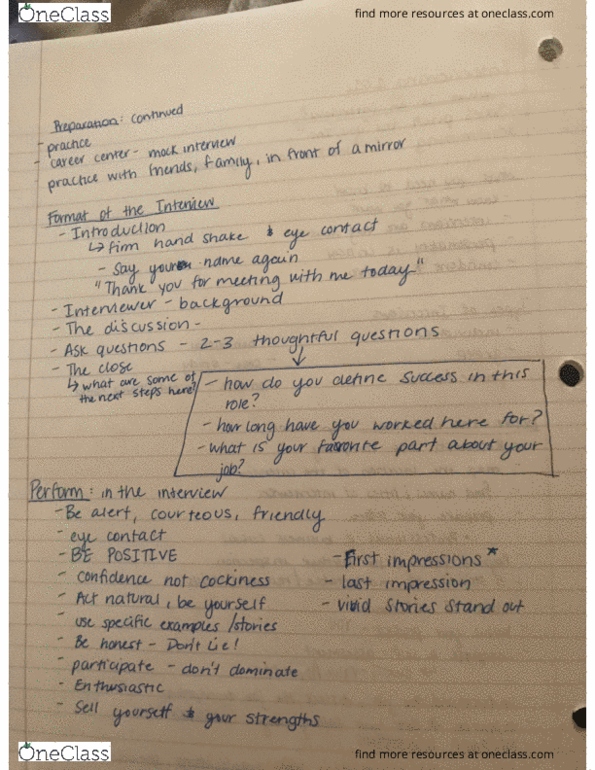 OneClass
find more resources at oneclass.com
Preparation: continued
- practice
- career center - mock interview
practice with friends, family, in front of a mirror
Format of the Interview
- Introduction
↳ firm hand shake & eye contact
- Say your name again
"Thank you for meeting with me today"
- Interviewer - background
- The discussion -
- Ask questions - 2-3 thoughtful questions
- The close
↳ what are some of the next steps here?
- how do you define success in this
role?
- how long have you worked here for?
- what is your favorite part about your
job?
Perform: in the interview
- Be alert, courteous, friendly
- eye contact
- BE POSITIVE
- confidence not cockiness
- Act natural, be yourself
- use specific examples/stories
- Be honest - Don't Lie!
- participate - don't dominate
- Enthusiastic
- Sell yourself & your strengths
- First impressions *
- last impression
- vivid stories stand out
OneClass
find more resources at oneclass.com